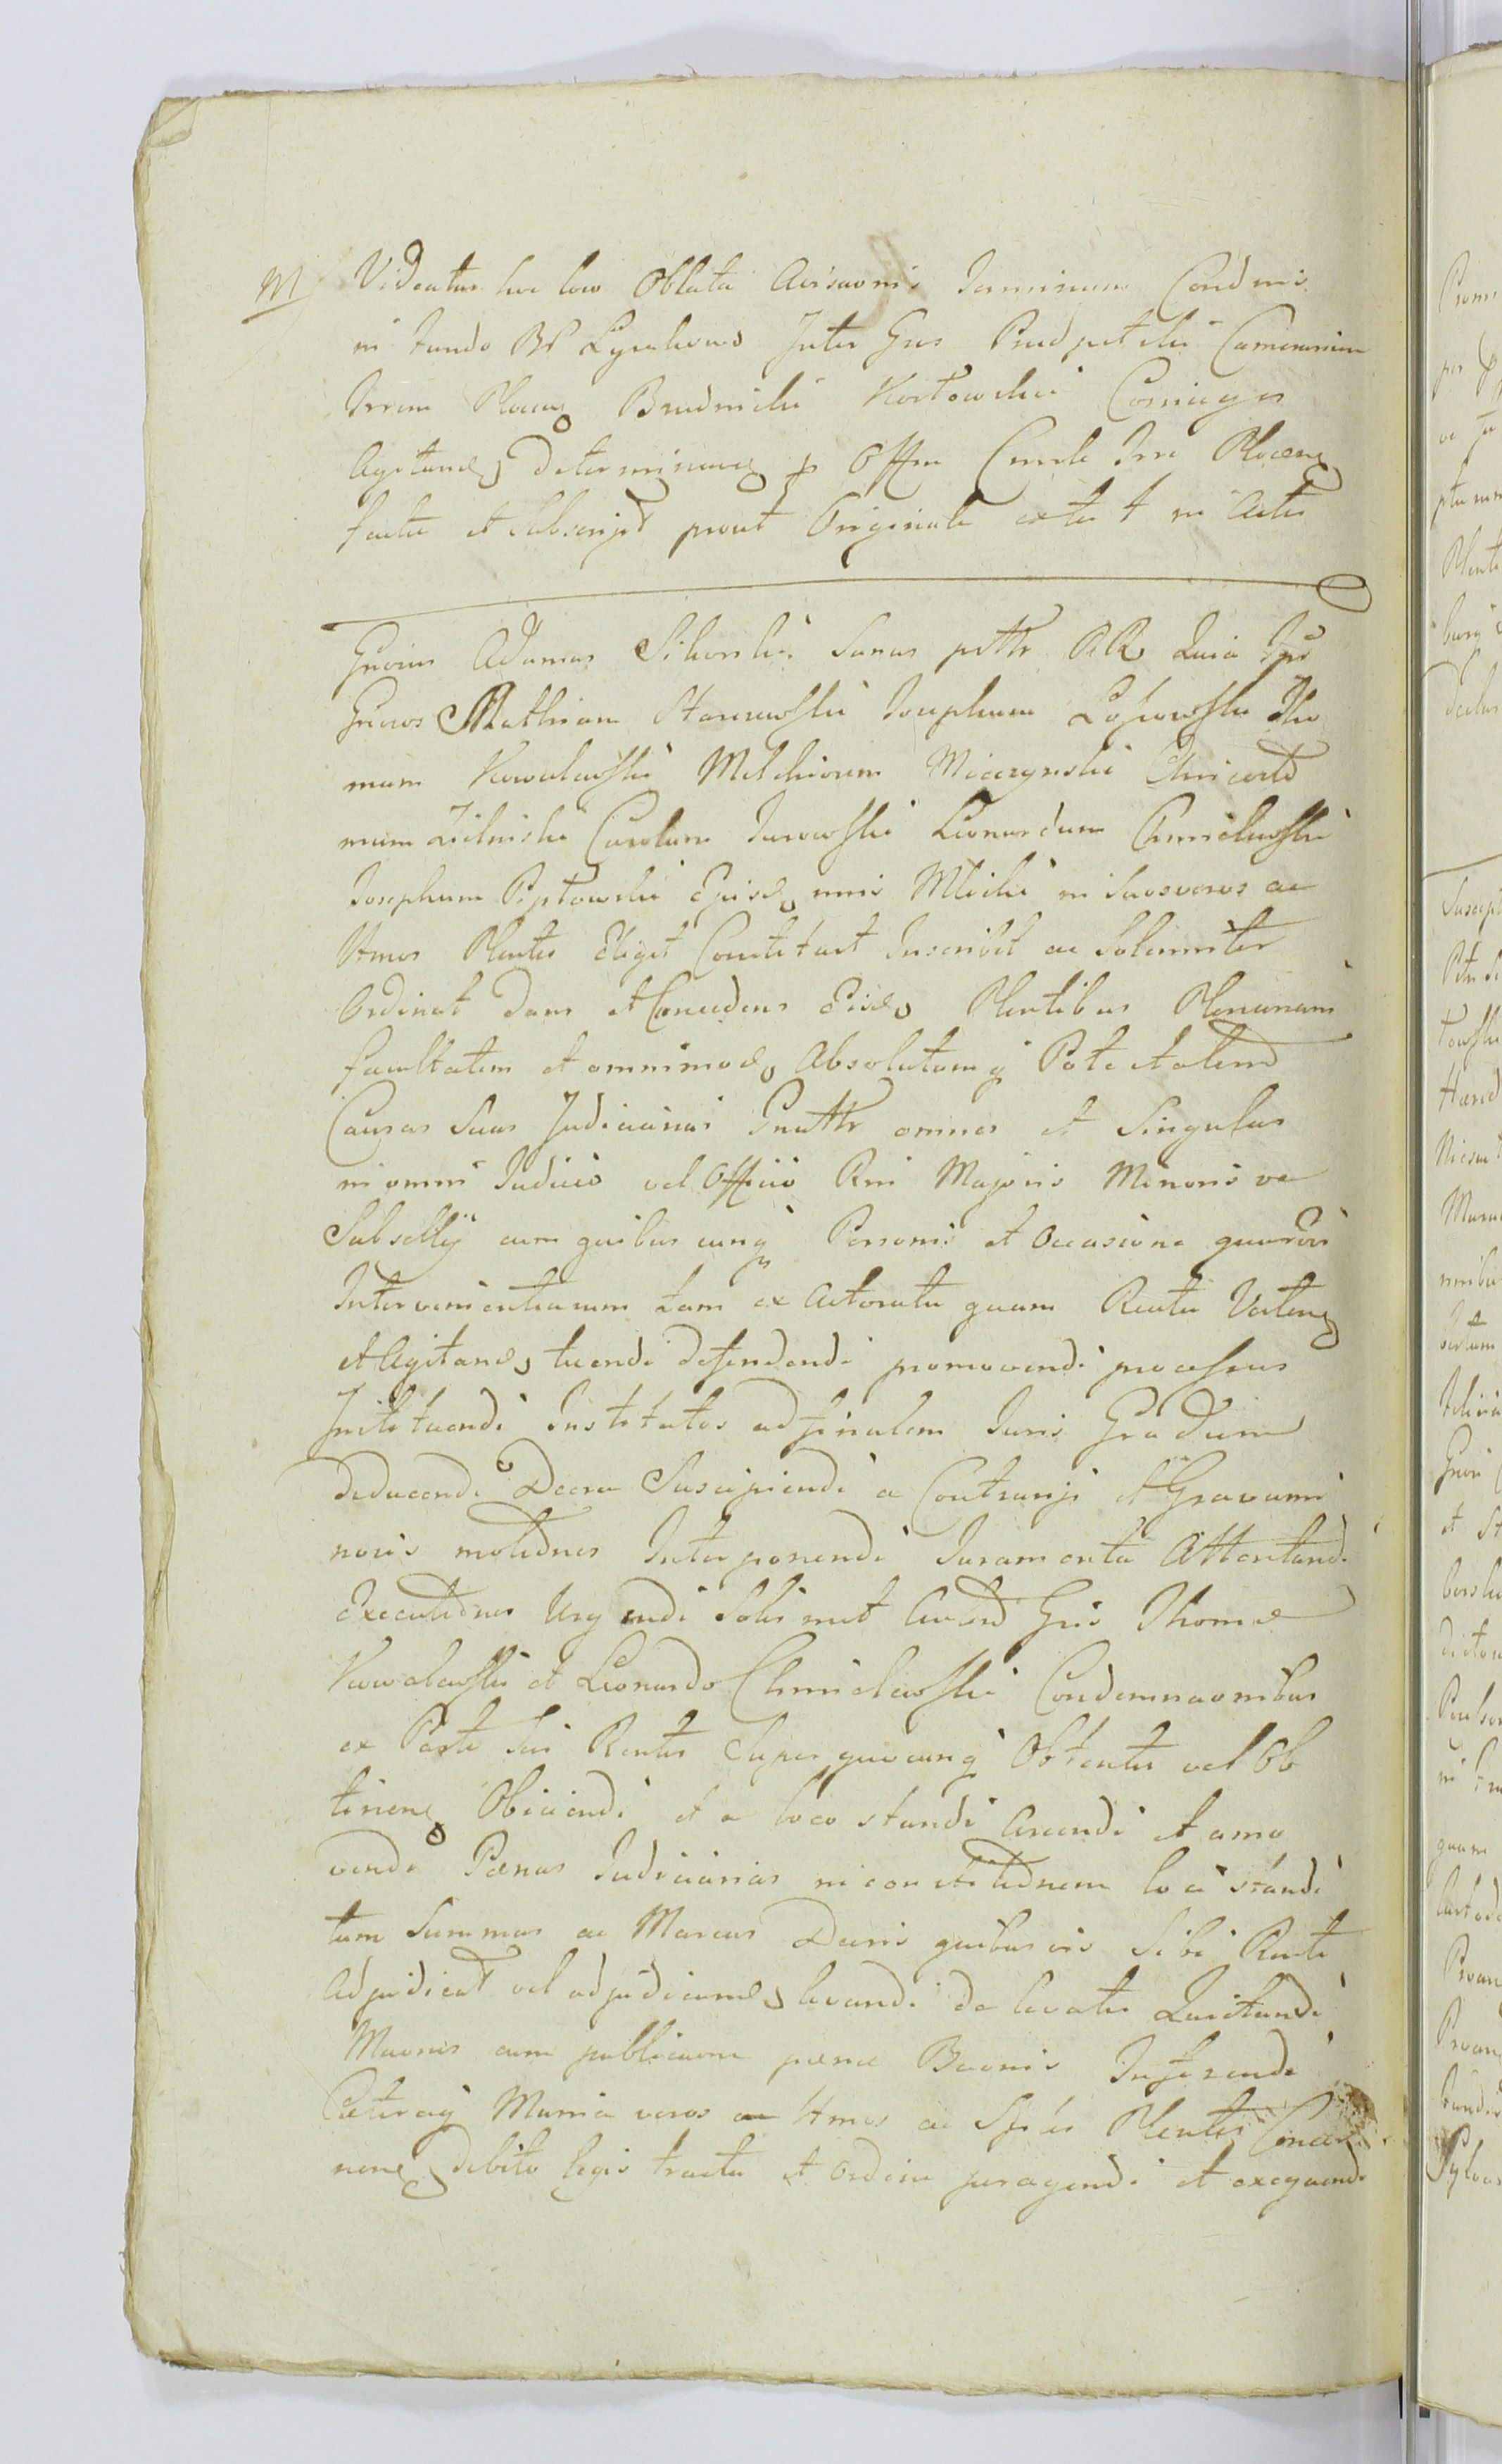 M Videatur hic loco Oblata Avisaonis Terminum Condnis
in fundo Br Liguhowo Inter Gsos Camerarium
Trrem Plocen Brudnicki Kortowskie Coniuges
Agitand determinand p Offm Cnsele Trre Plocen
facta et Subscript prout Originale exte t in Actis
Gnosus Adamus Sikorski Sanus pttr RR Quia Ipse
Gnosos Mathiam Starewski Josephum Łosiewski Tho
mam Kowalewski Melchiorem Miecznski
mum Zielinski Carolum Jurowski Leonardum Chmielewski
Josephum Peptowski in Suos veros ac
ltmos Plentes Eligit Constituit Inscribit ac Solenniter
Ordinat Dans et Concedens Eisd Plentibus Plenariam
facultatem et omnimod Absolutamq Potestatem
Causas Suas Judiciarias Gnattr omnes et Singulas
in omni Judicio vel Officio Rni Majoris Minoris ve
Subsellÿ cum quibus cunq Personis et Occasione quarvis
Intervenientiarum tam ex Actoratu quam Reatu Verten
et Agitand tuendi defendendi promovendi processus
Instituendi Institutos ad finalem Juris Gradum
deducendi Decra Suscipiendi a Contrarijs et Gravami
nosis motiones Interponendi Juramenta Attentandi
Executiones Urgendi Solis mut Gsis Thomæ
Kowalewski et Leonardo Chmielewski Condemnaonibus
ex Parte Sui Rentis Super quocunq Obtentis vel Ob
tinen Obiiciendi et a loco standi Arcendi et amo
vendi Pœnas Judiciarias in constitutionem loci standi
tum Summas ac Marcas Decris quibus vis Sibi Renti
Adjudicat vel adjudicand levandi de levatis Quietandi
Maonis cum publicaone pœnæ Baonis Inferendi
Cæteraq Munia veros ac ltmos ac Spéles Plentes Concer
nen debito legis tractu et Ordine peragendi et exequendi